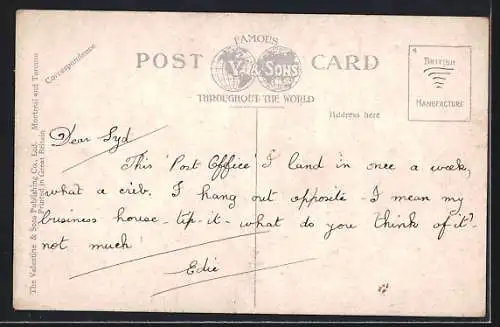 FAMOUS
POST CARD
V. & SONS
THROUGHOUT THE WORLD
BRITISH
MANUFACTURE
Correspondence
Address here
The Valentine & Sons Publishing Co., Ltd. Montreal and Toronto
Printed in Great Britain
Dear Syd
This 'Post Office' I land in once a week,
what a crib. I hang out opposite - I mean my
business house - tip-it - what do you think of it?
not much!
Edie